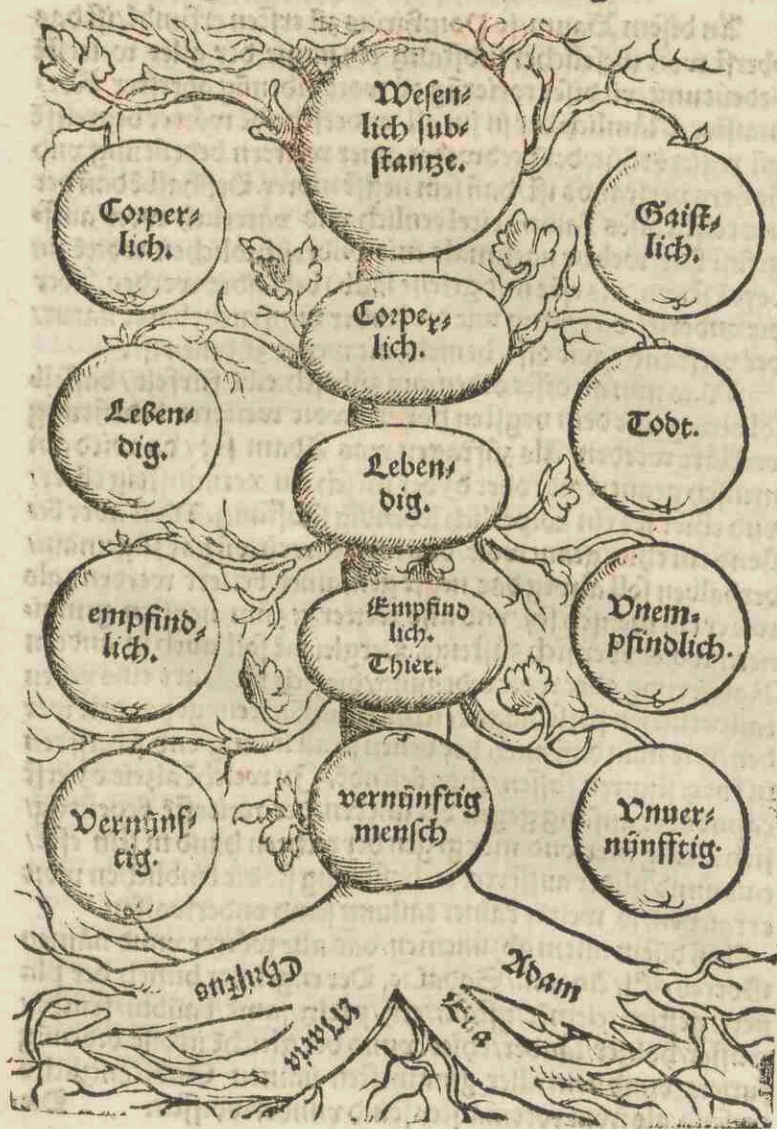 Wesen-
lich sub-
stantze.
Corper-
lich.
Gaist-
lich.
Corper-
lich.
Leben-
dig.
Todt.
Leben-
dig.
empfind-
lich.
Empfind
lich.
Thier.
Vnem-
pfindlich.
Vernünf-
tig.
vernünftig
mensch
Vnuer-
nünfftig.
Christus
Maria
Eua
Adam